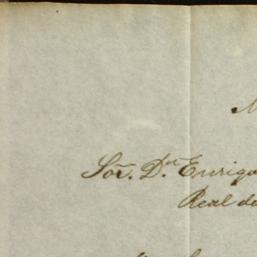 Sor. Dn Enriqu
Real de